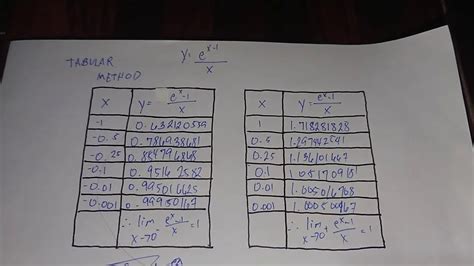 TABULAR METHOD
y = e^x-1 / x
x | y = e^x-1 / x
-1 | 0.632120559
-0.5 | 0.786938681
-0.25 | 0.884796868
-0.1 | 0.95162582
-0.01 | 0.995016625
-0.001 | 0.99950167
∴ lim x→0⁻ e^x-1 / x = 1
x | y = e^x-1 / x
1 | 1.718281828
0.5 | 1.297442541
0.25 | 1.136101667
0.1 | 1.05170918
0.01 | 1.005016708
0.001 | 1.000500167
∴ lim x→0⁺ e^x-1 / x = 1